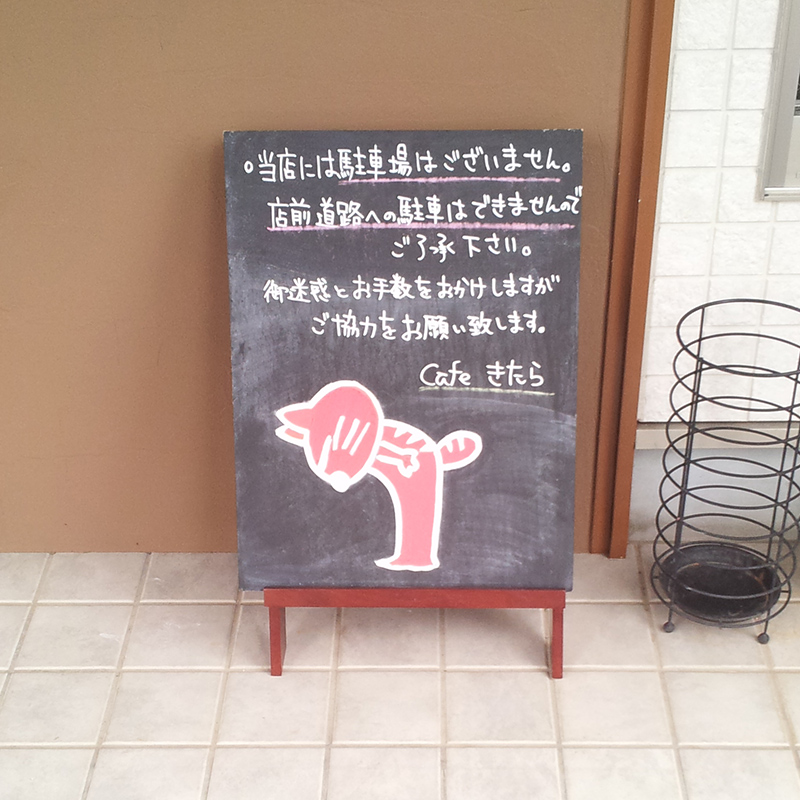 。当店には駐車場はございません。
店前道路への駐車はできませんので
ご了承下さい。
御迷惑とお手数をおかけしますが
ご協力をお願い致します。
Cafe きたら